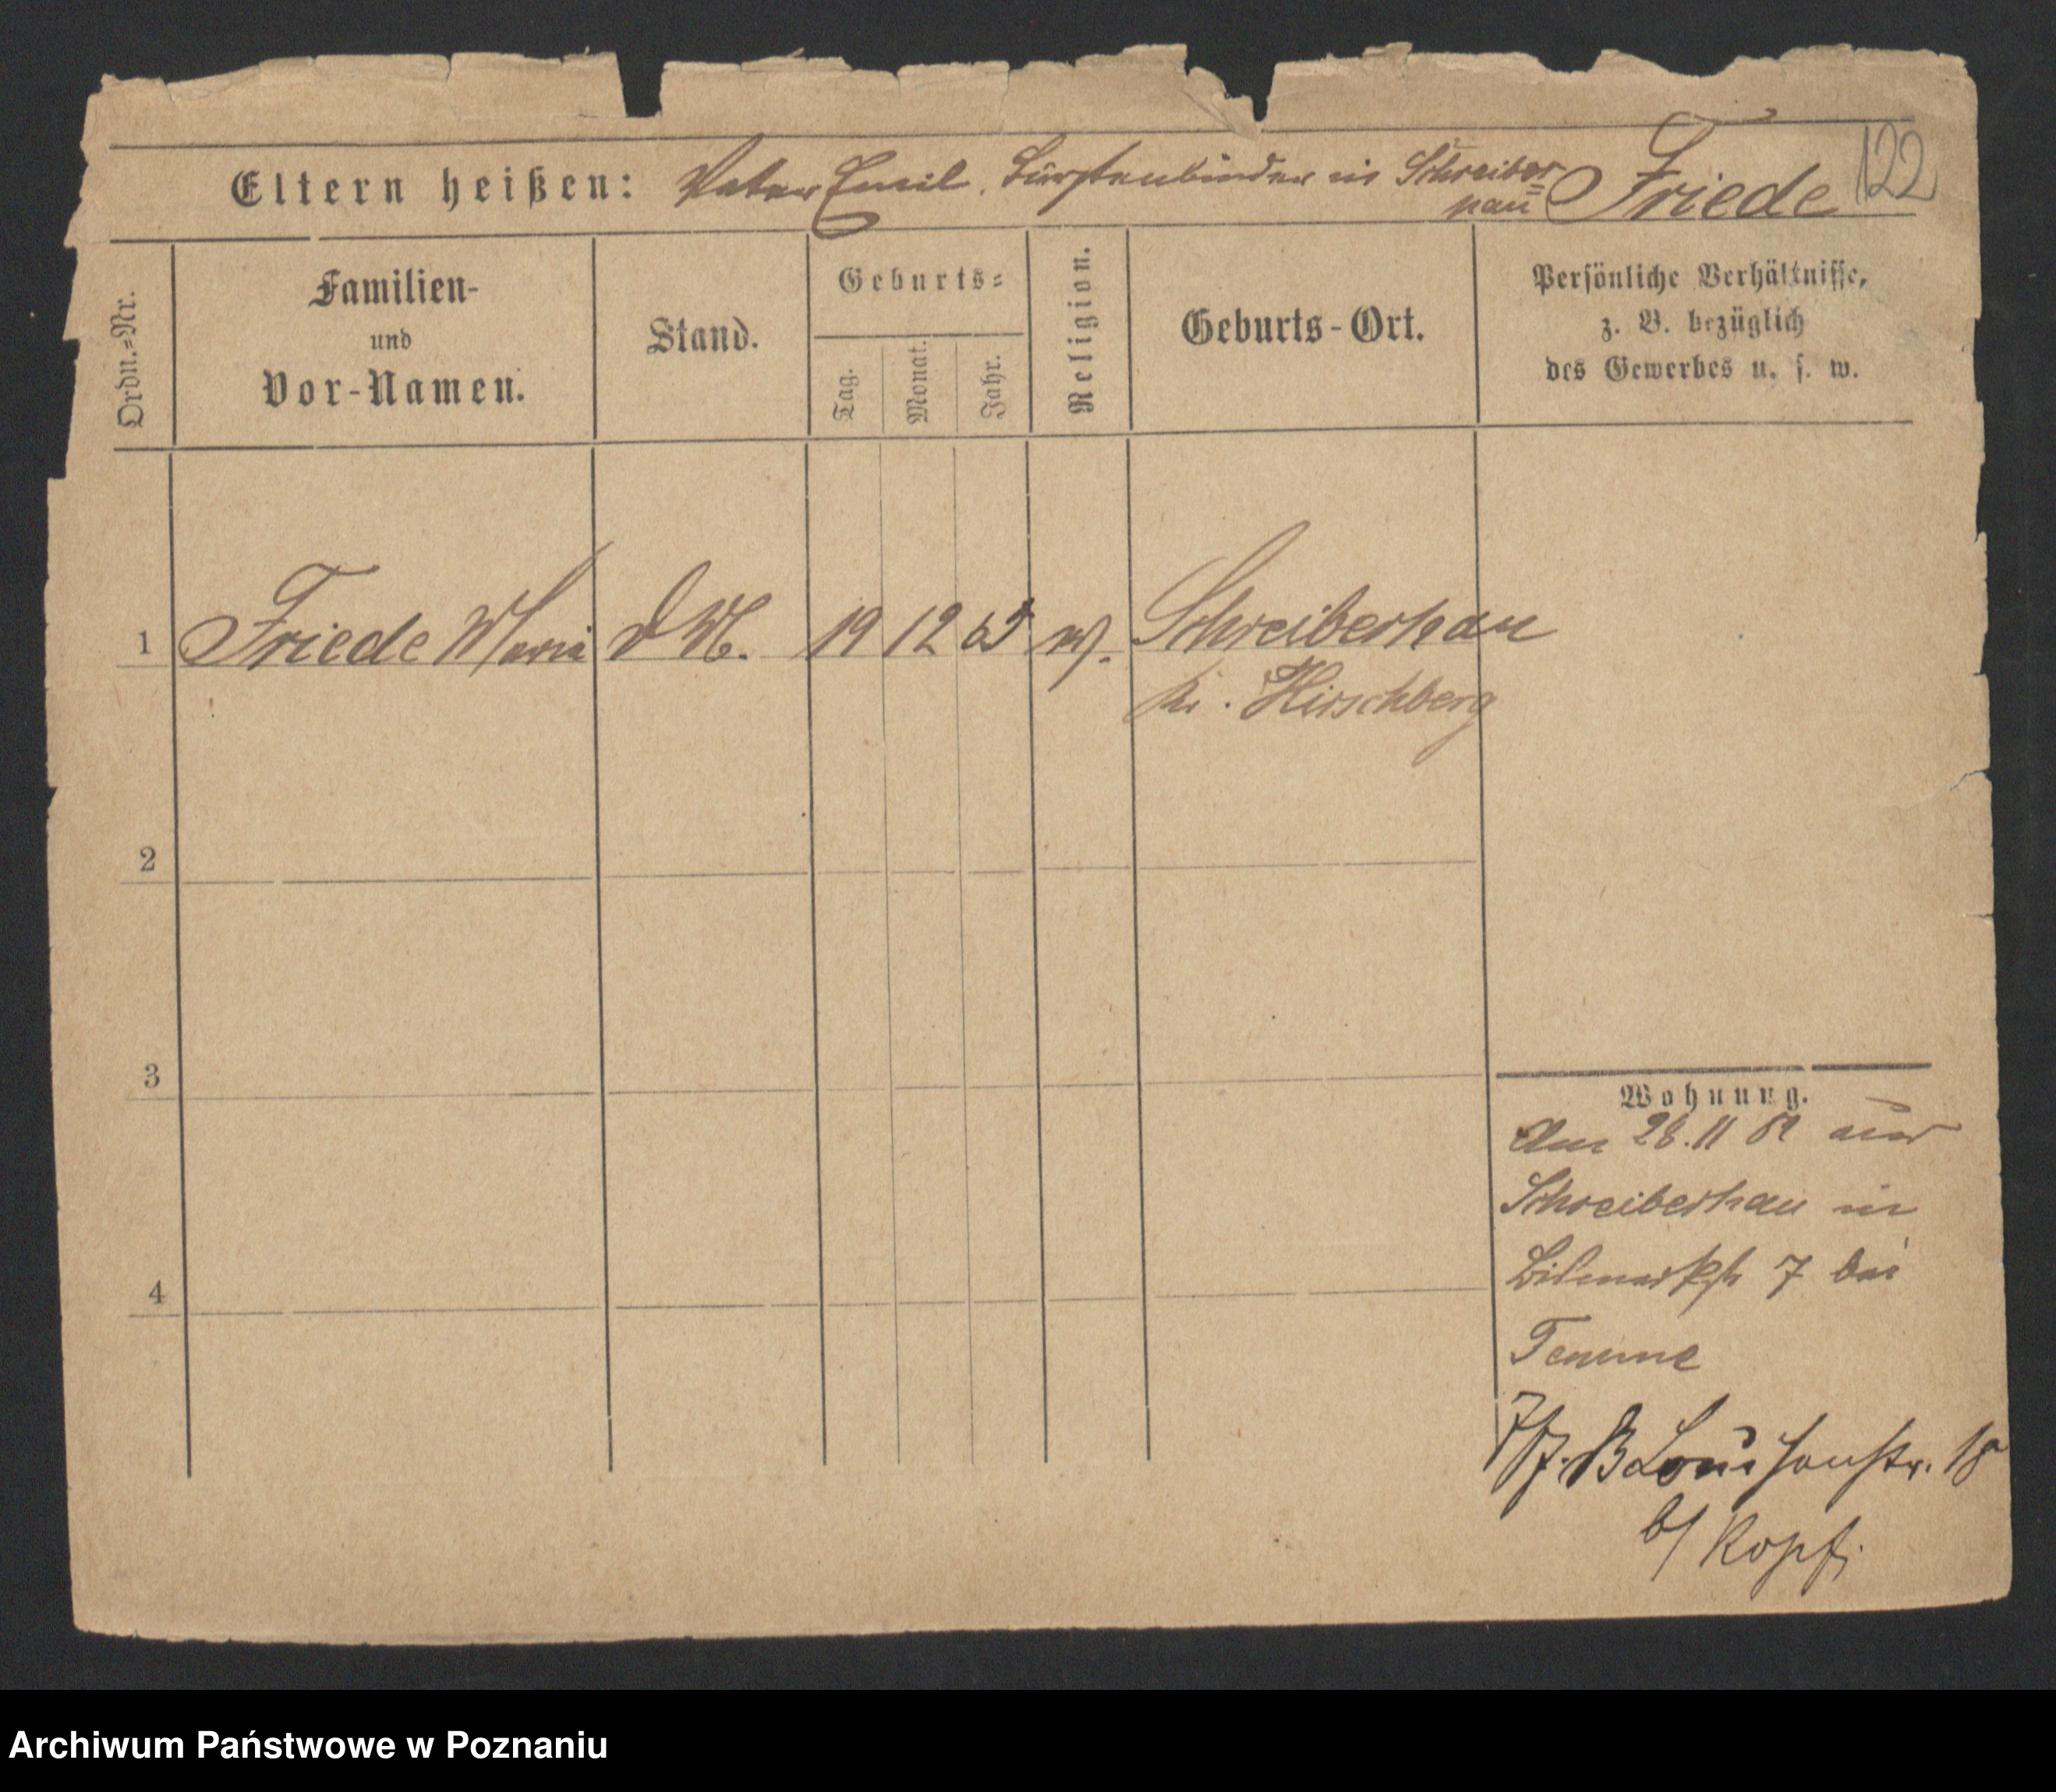 Eltern heißen: Vater Emil, Bürstenbinder in Schreiber=
hau Friede 122
Ordn.=Nr.
Familien-
und
Vor-Namen.
Stand.
Geburts=
Tag.
Monat.
Jahr.
Religion.
Geburts-Ort.
Persönliche Verhältnisse,
z. B. bezüglich
des Gewerbes u. s. w.
1 Friede Maria D M. 19 12 65 Schreiberhau
Kr. Hirschberg
2
3
4
Wohnung.
Am 28.11 aus
Schreiberhau in
7 bei
B Louisenstr. 18
b/ Kopf
Archiwum Państwowe w Poznaniu